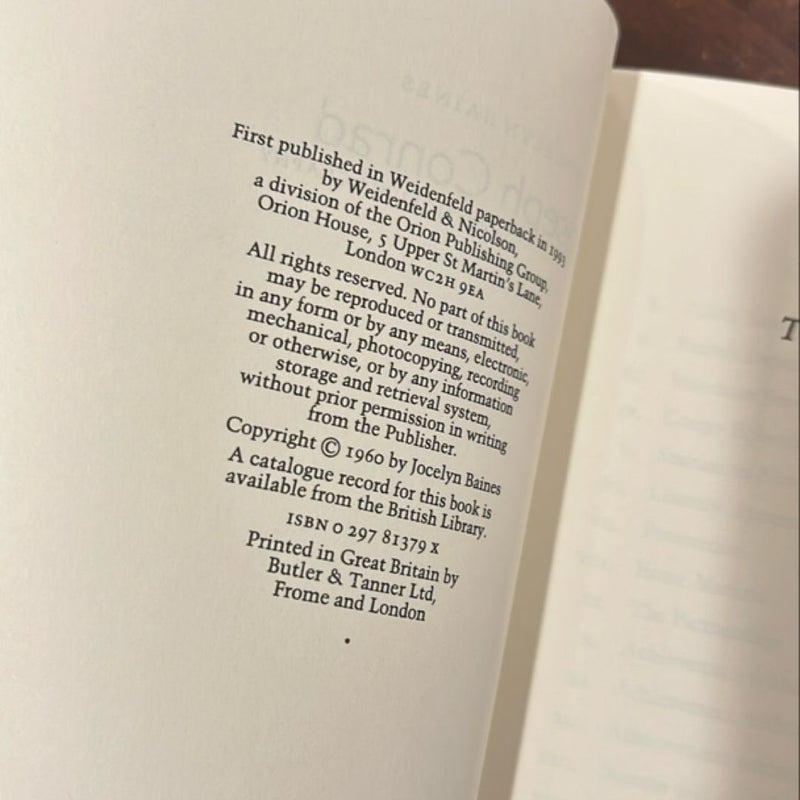 First published in Weidenfeld paperback in 1993
by Weidenfeld & Nicolson,
a division of the Orion Publishing Group,
Orion House, 5 Upper St Martin's Lane,
London WC2H 9EA
All rights reserved. No part of this book
may be reproduced or transmitted,
in any form or by any means, electronic,
mechanical, photocopying, recording
or otherwise, or by any information
storage and retrieval system,
without prior permission in writing
from the Publisher.
Copyright © 1960 by Jocelyn Baines
A catalogue record for this book is
available from the British Library.
ISBN 0 297 81379 X
Printed in Great Britain by
Butler & Tanner Ltd,
Frome and London
T